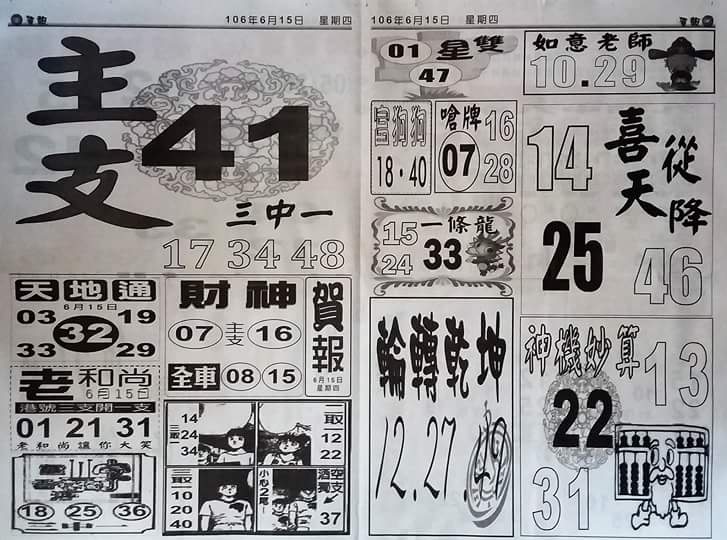 106年6月15日 星期四
主支
41
三中一
17 34 48
天地通
6月15日
03 19
32
33 29
財神
07 主支 16
全車 08 15
賀報
6月15日
星期四
老和尚
6月15日
港號三支開一支
01 21 31
老和尚讓你大笑
18 25 36
三中一
三取二
14
24
34
二取一
12
22
三取二
10
20
40
小心2尾
37
106年6月15日 星期四
01 星雙
47
如意老師
10.29
狗狗
18·40
嗆牌
07
16
28
一條龍
15
24
33
喜從天降
14
25
46
輪轉乾坤
12.27.49
神機妙算
13
22
31